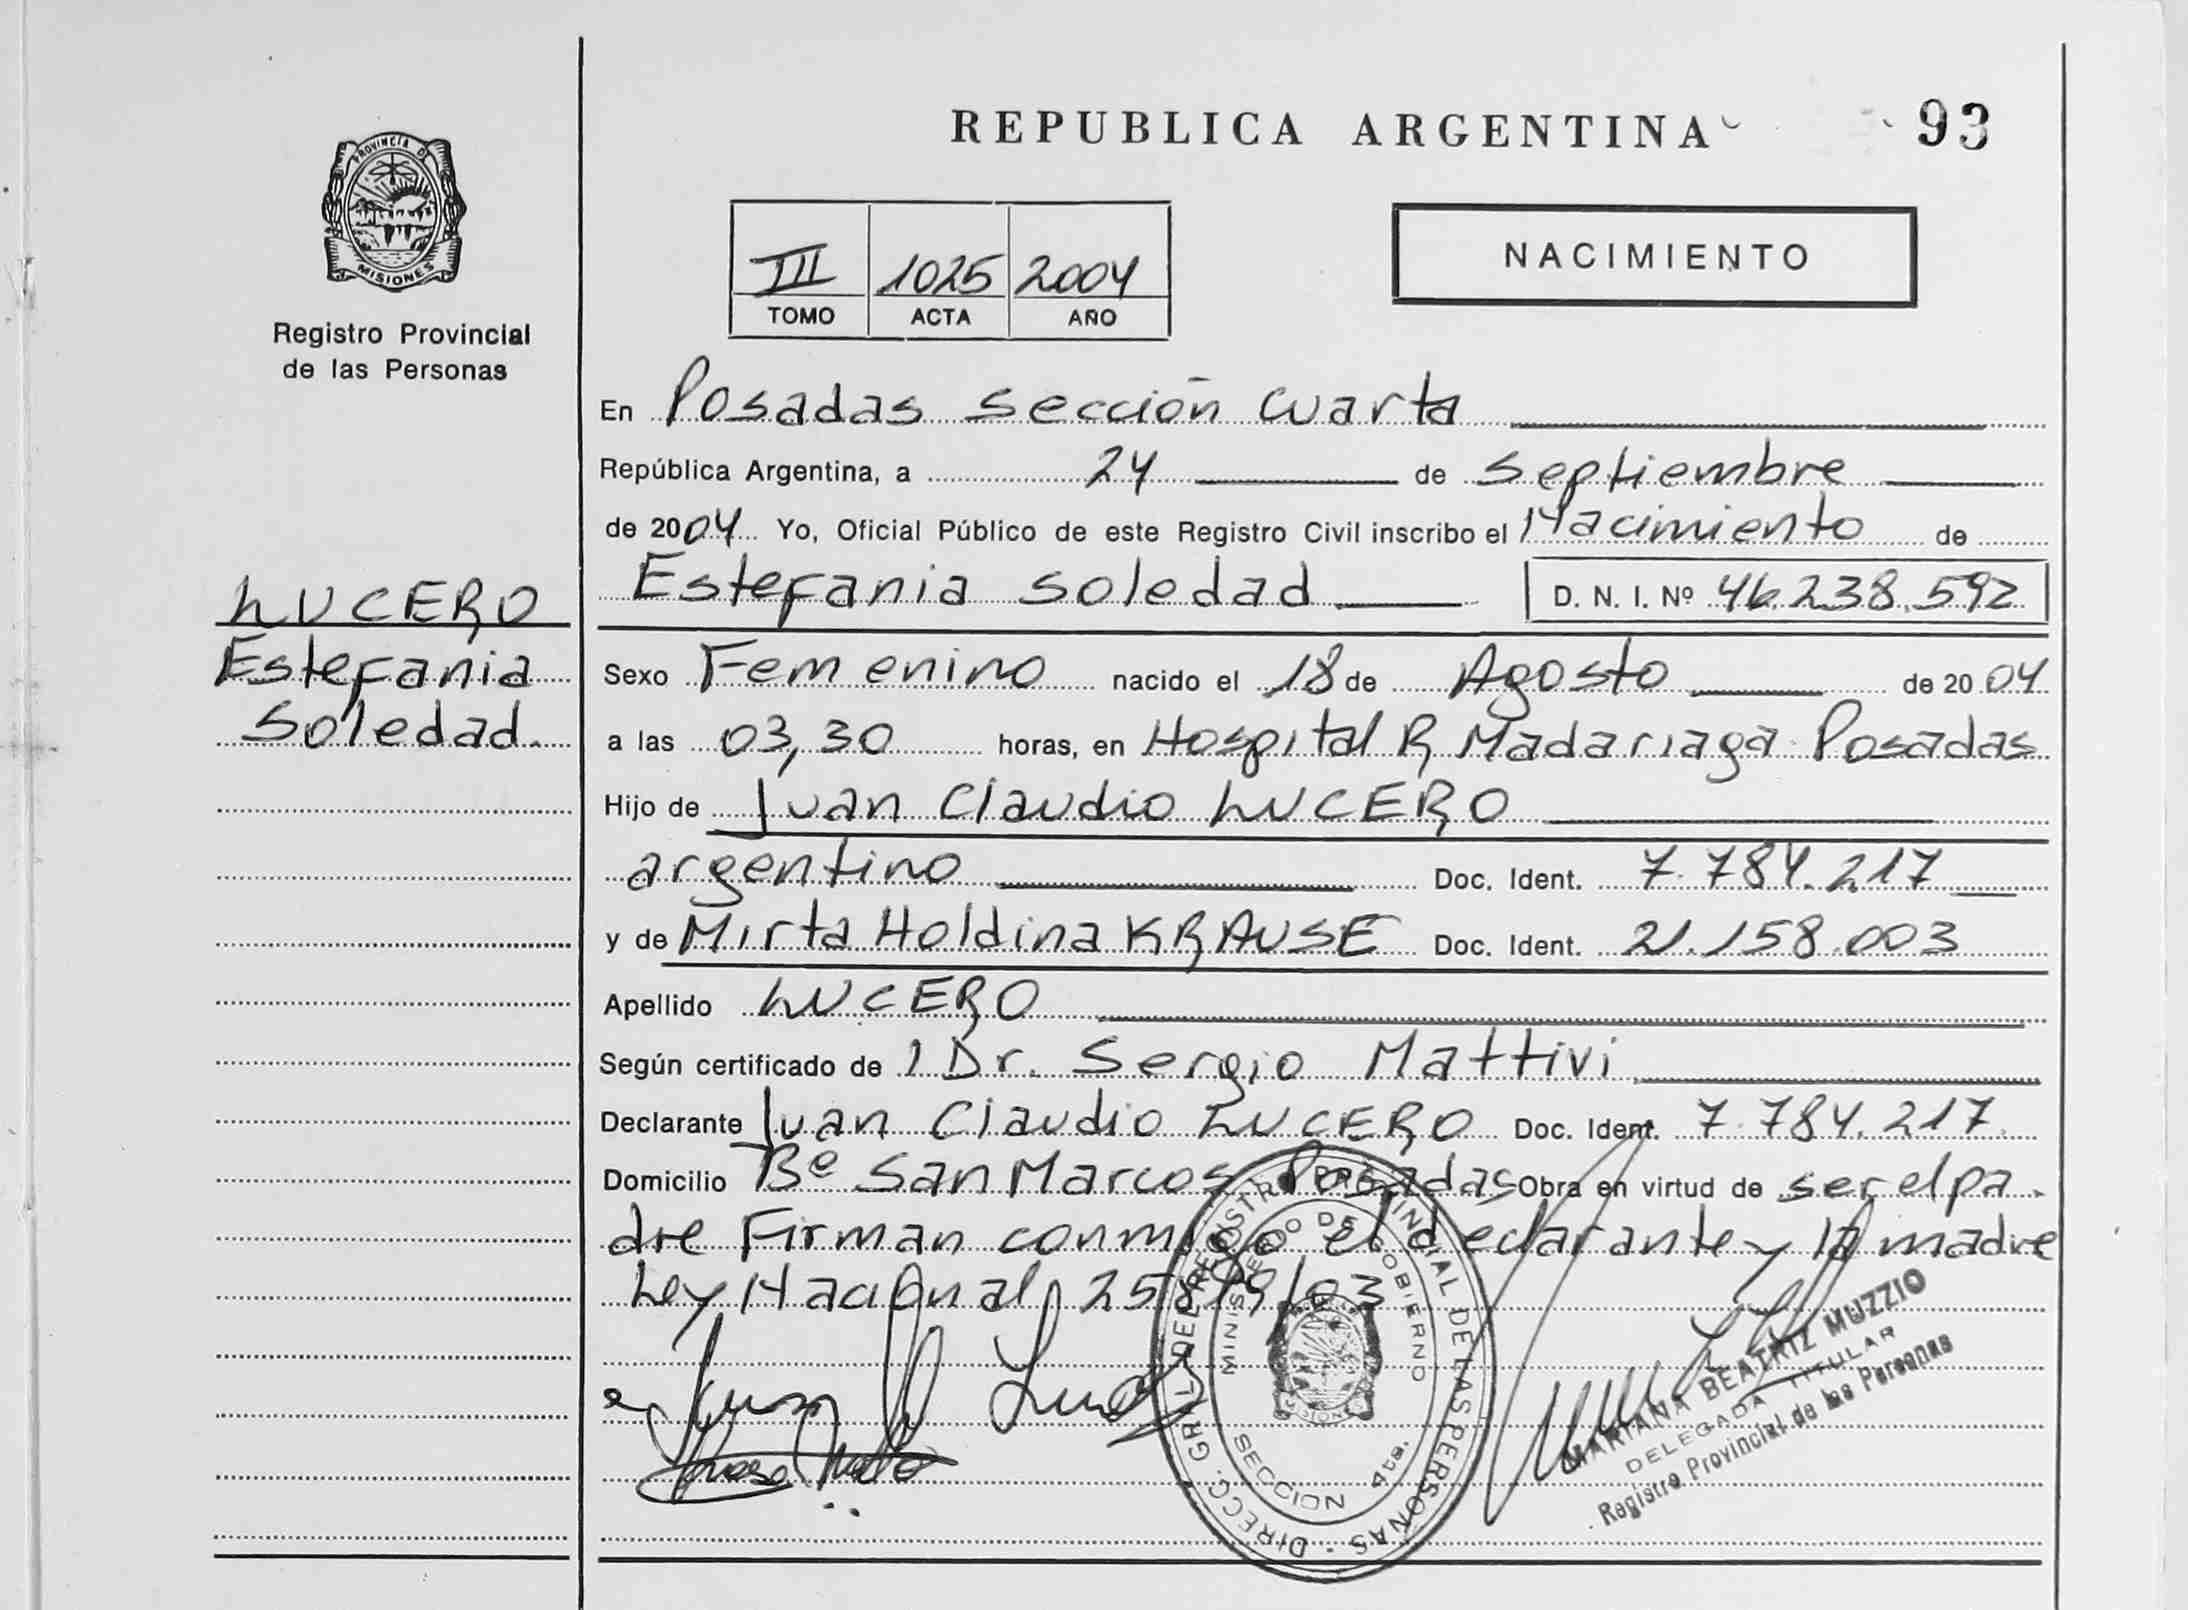 REPUBLICA ARGENTINA
93
PROVINCIA DE
MISIONES
Registro Provincial
de las Personas
III 1025 2004
TOMO ACTA AÑO
NACIMIENTO
En Posadas sección cuarta
República Argentina, a 24 de septiembre
de 2004 Yo, Oficial Público de este Registro Civil inscribo el Nacimiento de
Estefania Soledad D. N. I. Nº 46.238.592
LUCERO
Estefania
Soledad.
Sexo Femenino nacido el 18 de Agosto de 2004
a las 03,30 horas, en Hospital R Madariaga Posadas
Hijo de Juan Claudio LUCERO
argentino Doc. Ident. 7.784.217
y de Mirta Holdina KRAUSE Doc. Ident. 21.158.003
Apellido LUCERO
Según certificado de l Dr. Sergio Mattivi
Declarante Juan Claudio LUCERO Doc. Ident. 7.784.217
Domicilio Bº San Marcos Posadas Obra en virtud de ser el pa
dre Firman conmigo el declarante y la madre
Ley Nacional 25819/03
DIRECC. GRAL. DEL REGISTRO PROVINCIAL DE LAS PERSONAS
MINISTERIO DE GOBIERNO
SECCION 4ta.
MARIANA BEATRIZ MUZZIO
DELEGADA TITULAR
Registro Provincial de las Personas